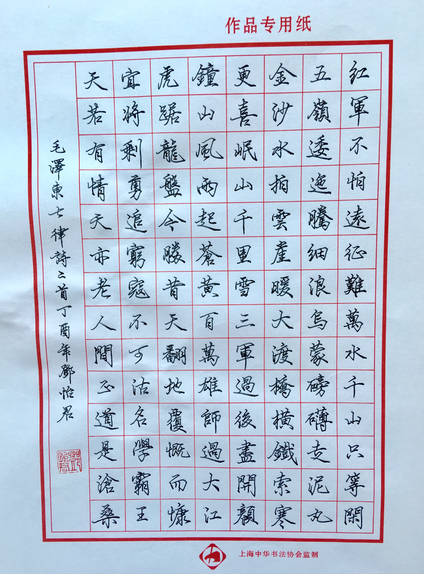 作品专用纸
红軍不怕遠征難萬水千山只等閑
五嶺逶迤騰細浪烏蒙磅礴走泥丸
金沙水拍雲崖暖大渡橋橫鐵索寒
更喜岷山千里雪三軍過後盡開顏
鐘山風雨起蒼黃百萬雄師過大江
虎踞龍盤今勝昔天翻地覆慨而慷
宜將剩勇追窮寇不可沽名學霸王
天若有情天亦老人間正道是滄桑
毛澤東七律詩二首丁酉年鄧怡君
上海中华书法协会监制